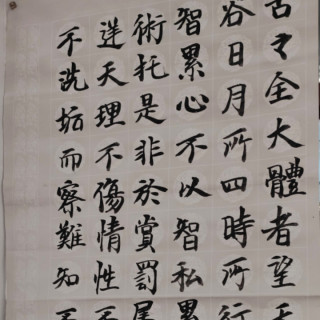 古之全大體者望天
谷日月所四時所行
智累心不以智私累
術托是非於賞罰屬
逆天理不傷情性不
不洗垢而察難知不